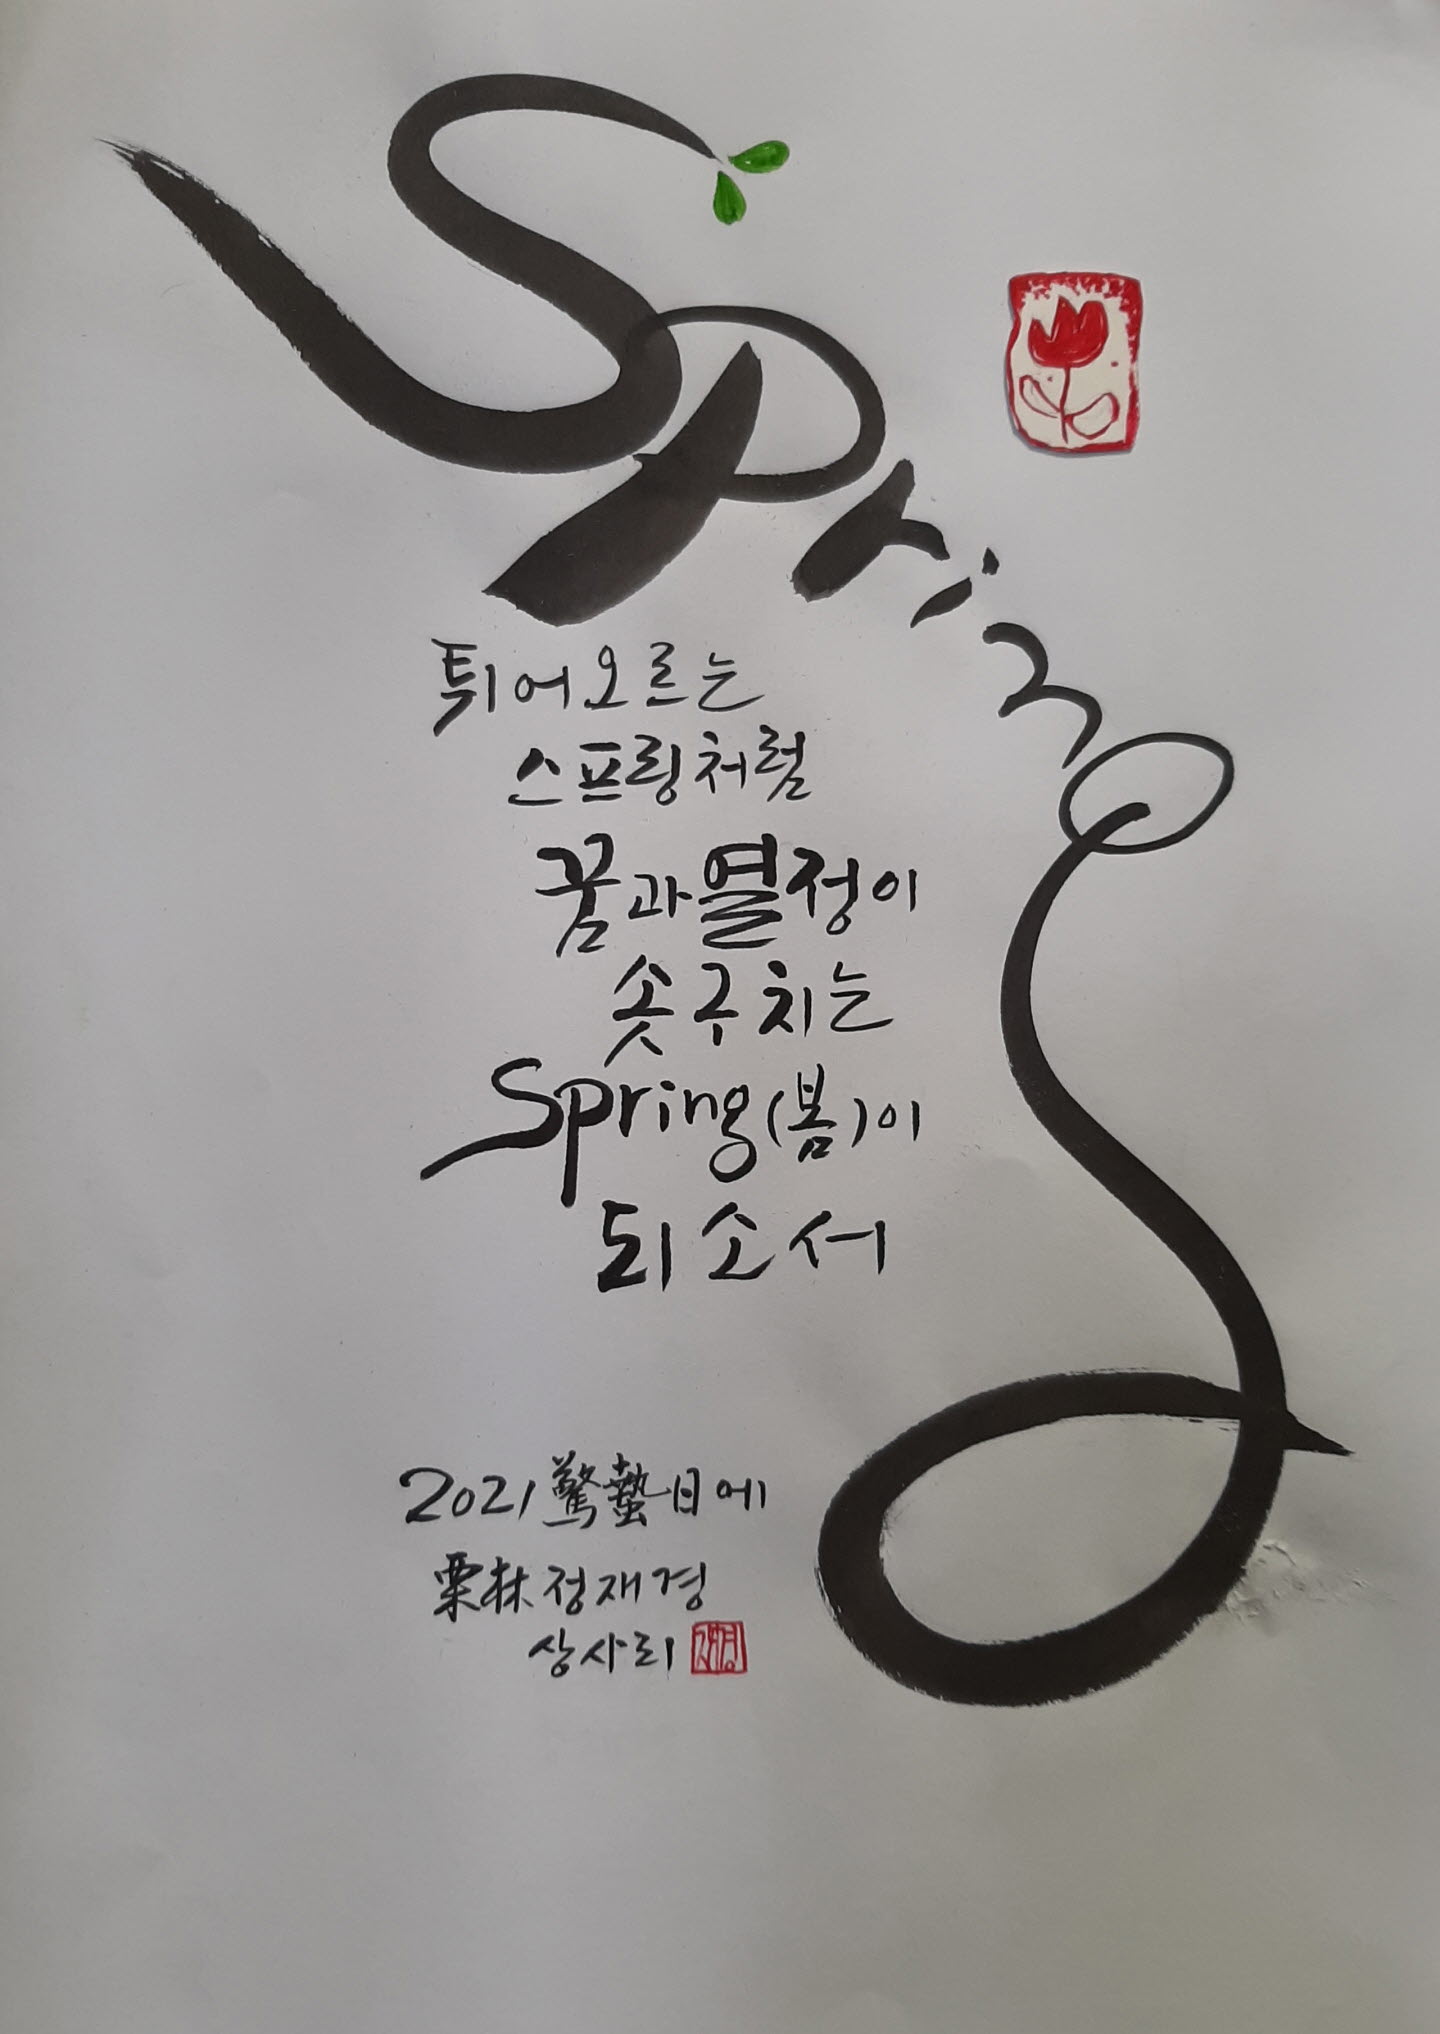 Spring
튀어오르는
스프링처럼
꿈과열정이
솟구치는
Spring(봄)이
되소서
2021驚蟄日에
栗林정재경
상사리
재경